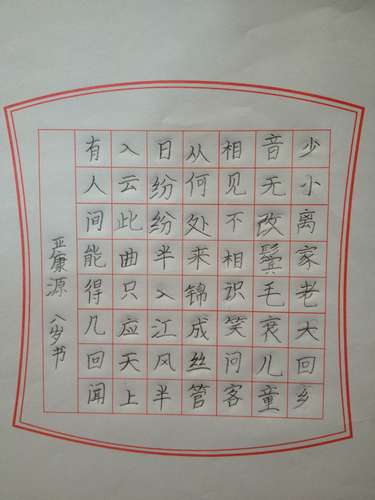 少小离家老大回乡
音无改鬓毛衰儿童
相见不相识笑问客
从何处来锦成丝管
日纷纷半入江风半
入云此曲只应天上
有人间能得几回闻
严康源 八岁书